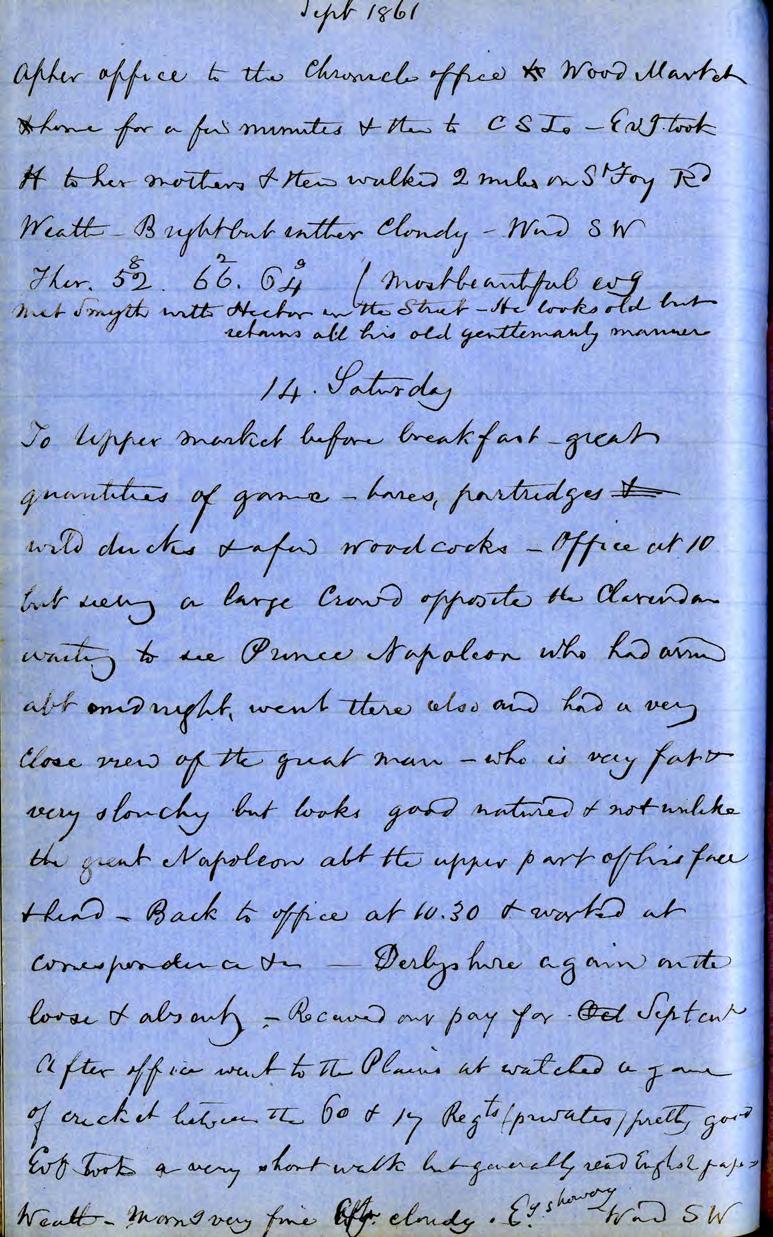 Sept 1861
After office to the Chronicle office & Wood Market
& home for a few minutes & then to C S Is - Evg. took
H to her mothers & then walked 2 miles on St Foy Rd
Weath - Bright but rather Cloudy - Wind S W
Ther. 52 8. 66 2. 64 9 / most beautiful evg
met Smyth with Hector in the Street - He looks old but
retains all his old gentlemanly manner
14. Saturday
To Upper market before breakfast - great
quantities of game - hares, partridges &
wild ducks & a few woodcocks - Office at 10
but seeing a large Crowd opposite the Clarendon
waiting to see Prince Napoleon who had arrivd
abt midnight, went there also and had a very
close view of the great man - who is very fat &
very slouchy but looks good natured & not unlike
the great Napoleon abt the upper part of his face
& head - Back to office at 10.30 & worked at
correspondence &c - Derbyshire again on the
loose & absent - Received our pay for Oct Sept
After office went to the Plains at watched a game
of cricket between the 60 & 17 Regts (privates) pretty good
Evg Took a very short walk but generally read English papers
Weath - Morng very fine Aftr. cloudy. Evg showery Wind S W